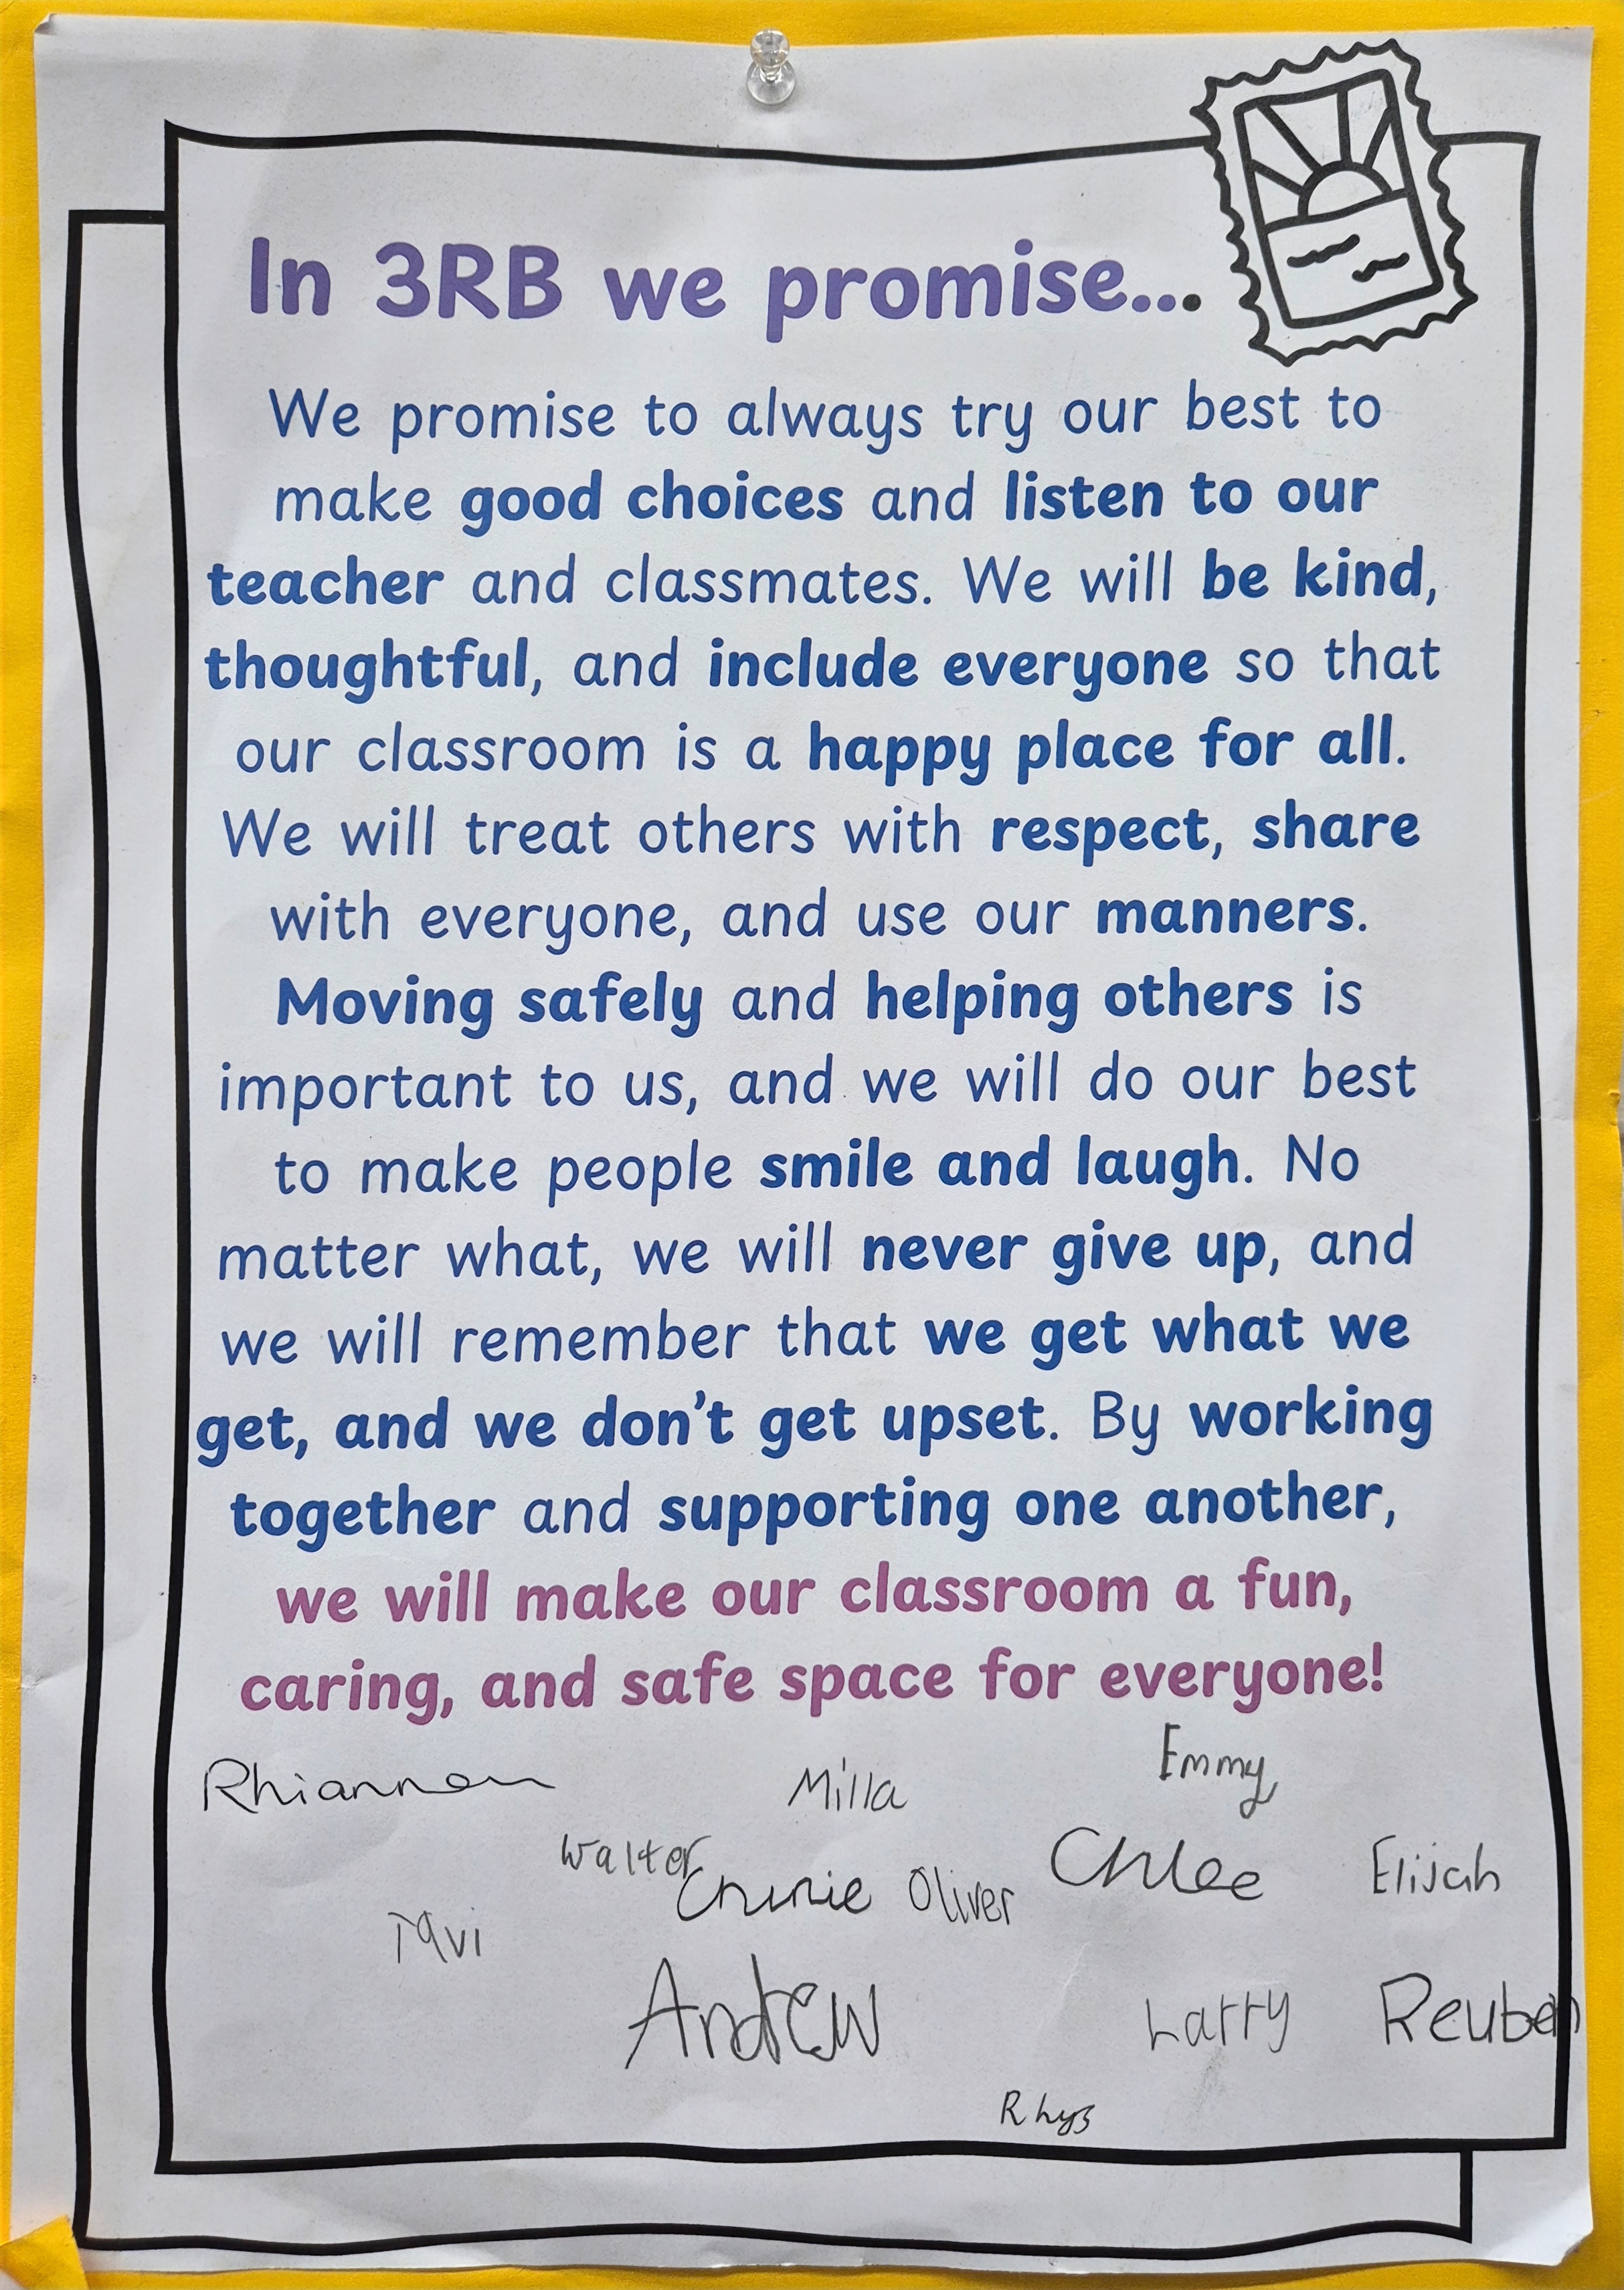 In 3RB we promise...
We promise to always try our best to
make good choices and listen to our
teacher and classmates. We will be kind,
thoughtful, and include everyone so that
our classroom is a happy place for all.
We will treat others with respect, share
with everyone, and use our manners.
Moving safely and helping others is
important to us, and we will do our best
to make people smile and laugh. No
matter what, we will never give up, and
we will remember that we get what we
get, and we don't get upset. By working
together and supporting one another,
we will make our classroom a fun,
caring, and safe space for everyone!
Emmy
Rhiannon Milla
Walter Oliver Chloe Elijah
Tavi
Andrew Larry Reuben
Rhys